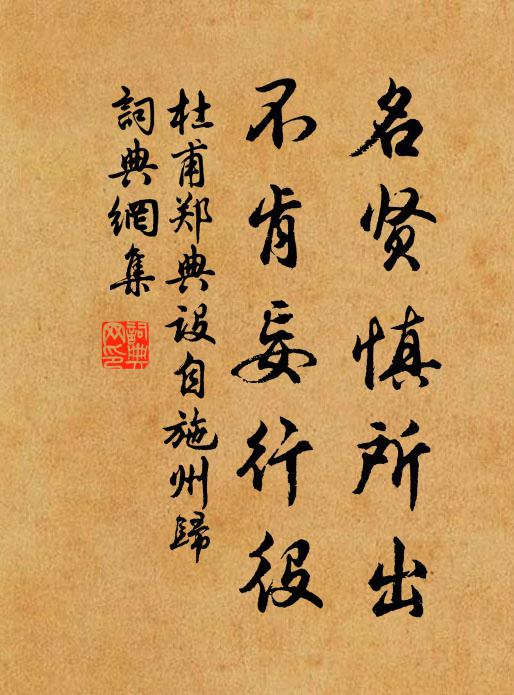 名贤慎所出
不肯妄行役
杜甫郑典设自施州歸
詞典網集
詞典网印